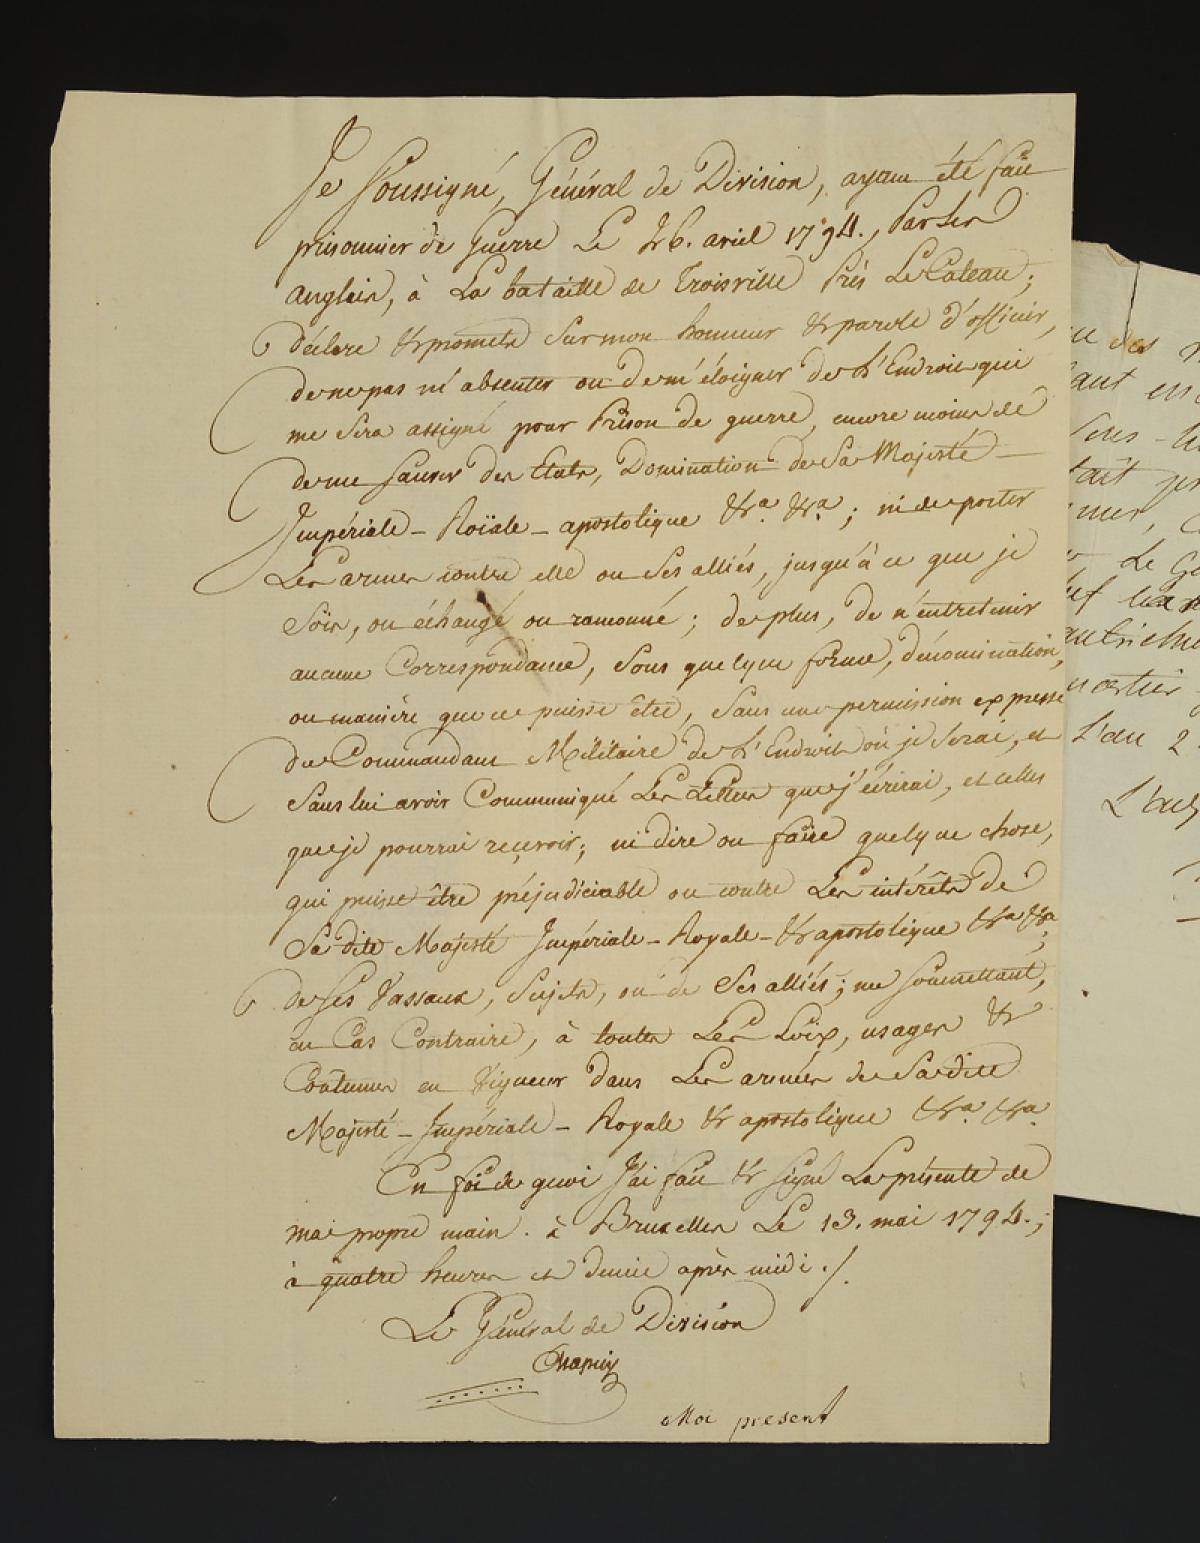 Je Soussigné, Général de Division, ayant été fait
prisonnier de Guerre Le 26. avril 1794., Par Les
anglais, à La bataille de Troisville Près Le Cateau;
déclare & promets Sur mon honneur & parole d'officier,
de ne pas m'absenter ou de m'éloigner de L'Endroit qui
me Sera assigné pour Prison de guerre, encore moins de
de me Sauver des Etats, Domination de Sa Majesté
Impériale - Roïale - apostolique &ra. &ra.; ni de porter
Les armes contre elle ou Ses alliés, jusqu'à ce que je
Sois, ou échangé ou rançonné; de plus, de n'entretenir
aucune Correspondance, Sous quelque forme, dénomination,
ou manière que ce puisse être, Sans une permission expresse
du Commandant Militaire de L'Endroit où je Serai, et
Sans lui avoir Communiqué Les Lettres que j'écrirai, et celles
que je pourrai reçevoir; ni dire ou faire quelque chose,
qui puisse être préjudiciable ou contre Les intérêts de
Sa dite Majesté Impériale - Royale - & apostolique &ra &ra;
de Ses Vassaux, Sujets, ou de Ses alliés; me Soumettant,
au Cas Contraire, à toutes Les Loix, usages &
Coutumes en Vigueur dans Les armées de Sa dite
Majesté - Impériale - Royale & apostolique &ra. &ra.
En foi de quoi J'ai fait & Signé La présente de
ma propre main. à Bruxelles Le 13. mai 1794.;
à quatre heures et demie après midi ./.
Le Général de Division
Chapuy
Moi present
des
Sous-
tait
mer,
Le
autrichi
L'an 2